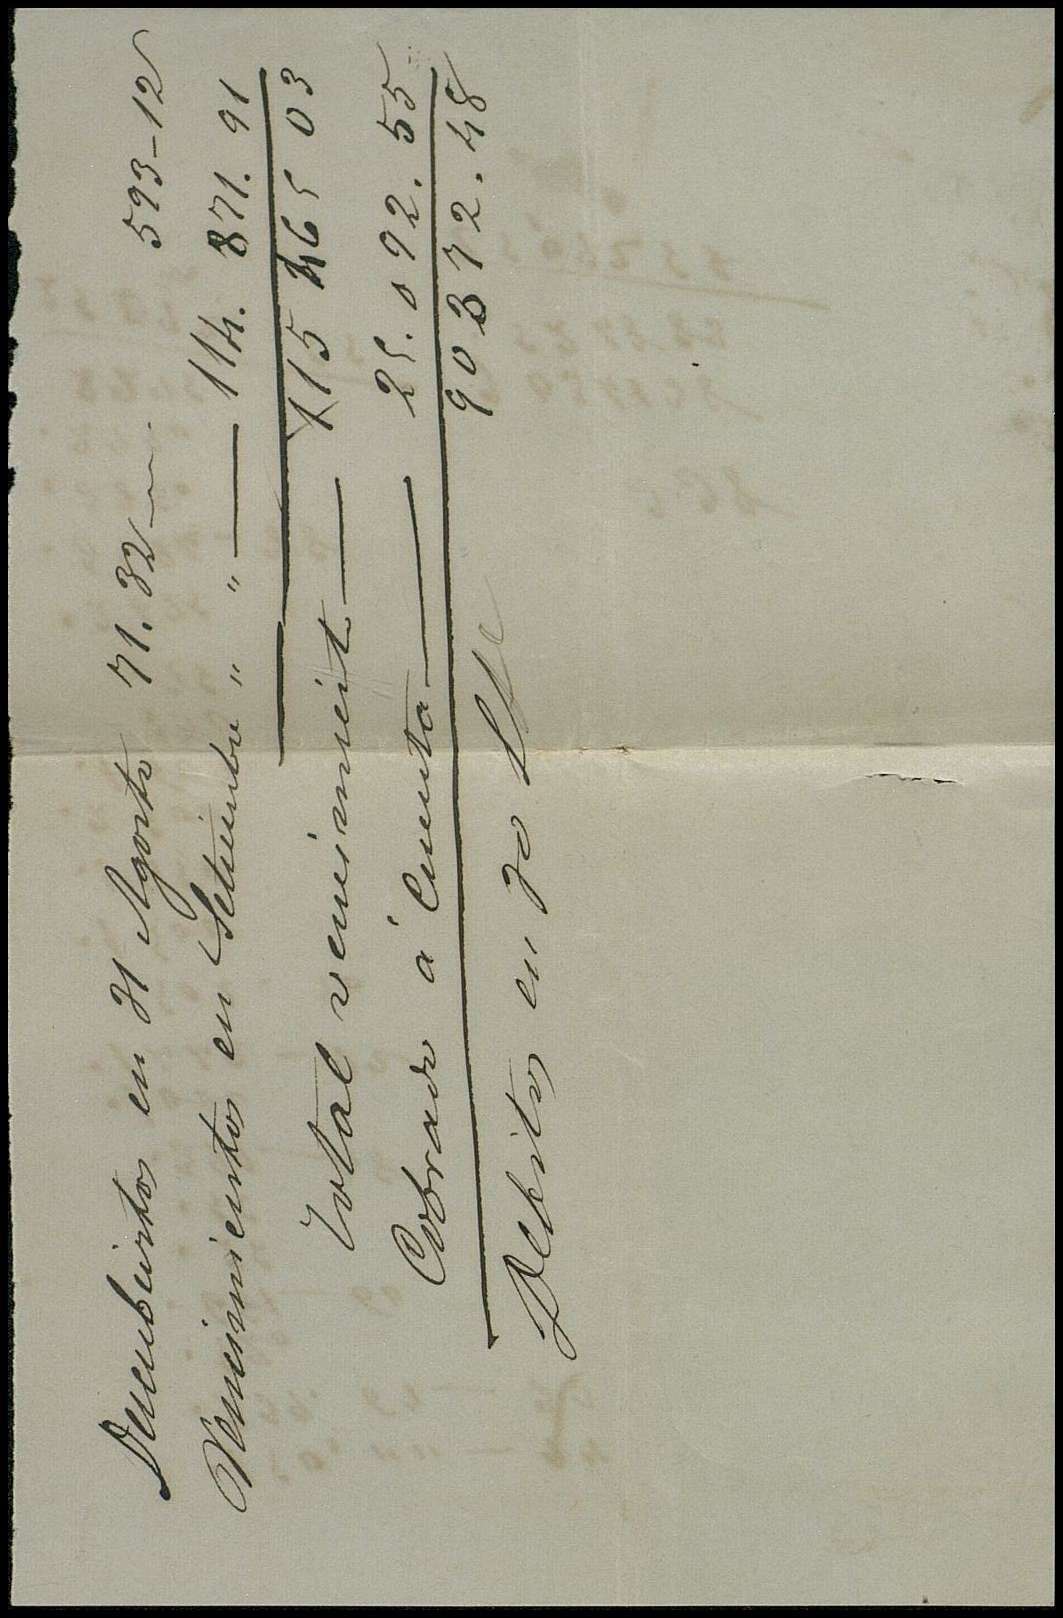 Descubiertos en 31 Agosto 71.32 — 593-12
Vencimientos en Setiembre " " — 114.871.91
115 465 03
Total vencimient — 
Cobrado á Cuenta — 25.092.55
90372.48
Debitos en 30 St